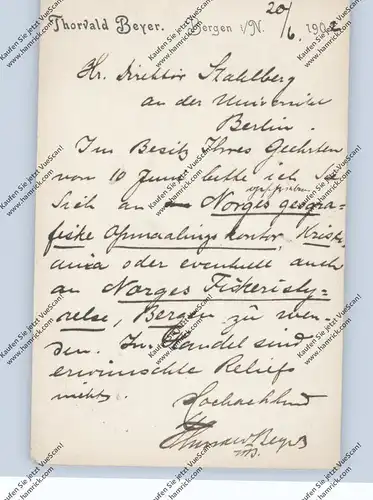 Thorvald Beyer. Bergen i/N. 20/6. 1902
Hr. Direktor Stahlberg
an der Universität
Berlin.
Im Besitz Ihres Geehrten
vom 10 Juni bitte ich Sie
Sich an Norges geogra-
fiske Opmaalings kontor, Kristi-
ania oder eventuell auch
an Norges Fiskeristy-
relse, Bergen zu wen-
den. Im Handel sind
erwünschte Reliefs
nicht.
Hochachtend
Thorvald Beyer
Kaufen Sie jetzt VueScan!
www.hamrick.com